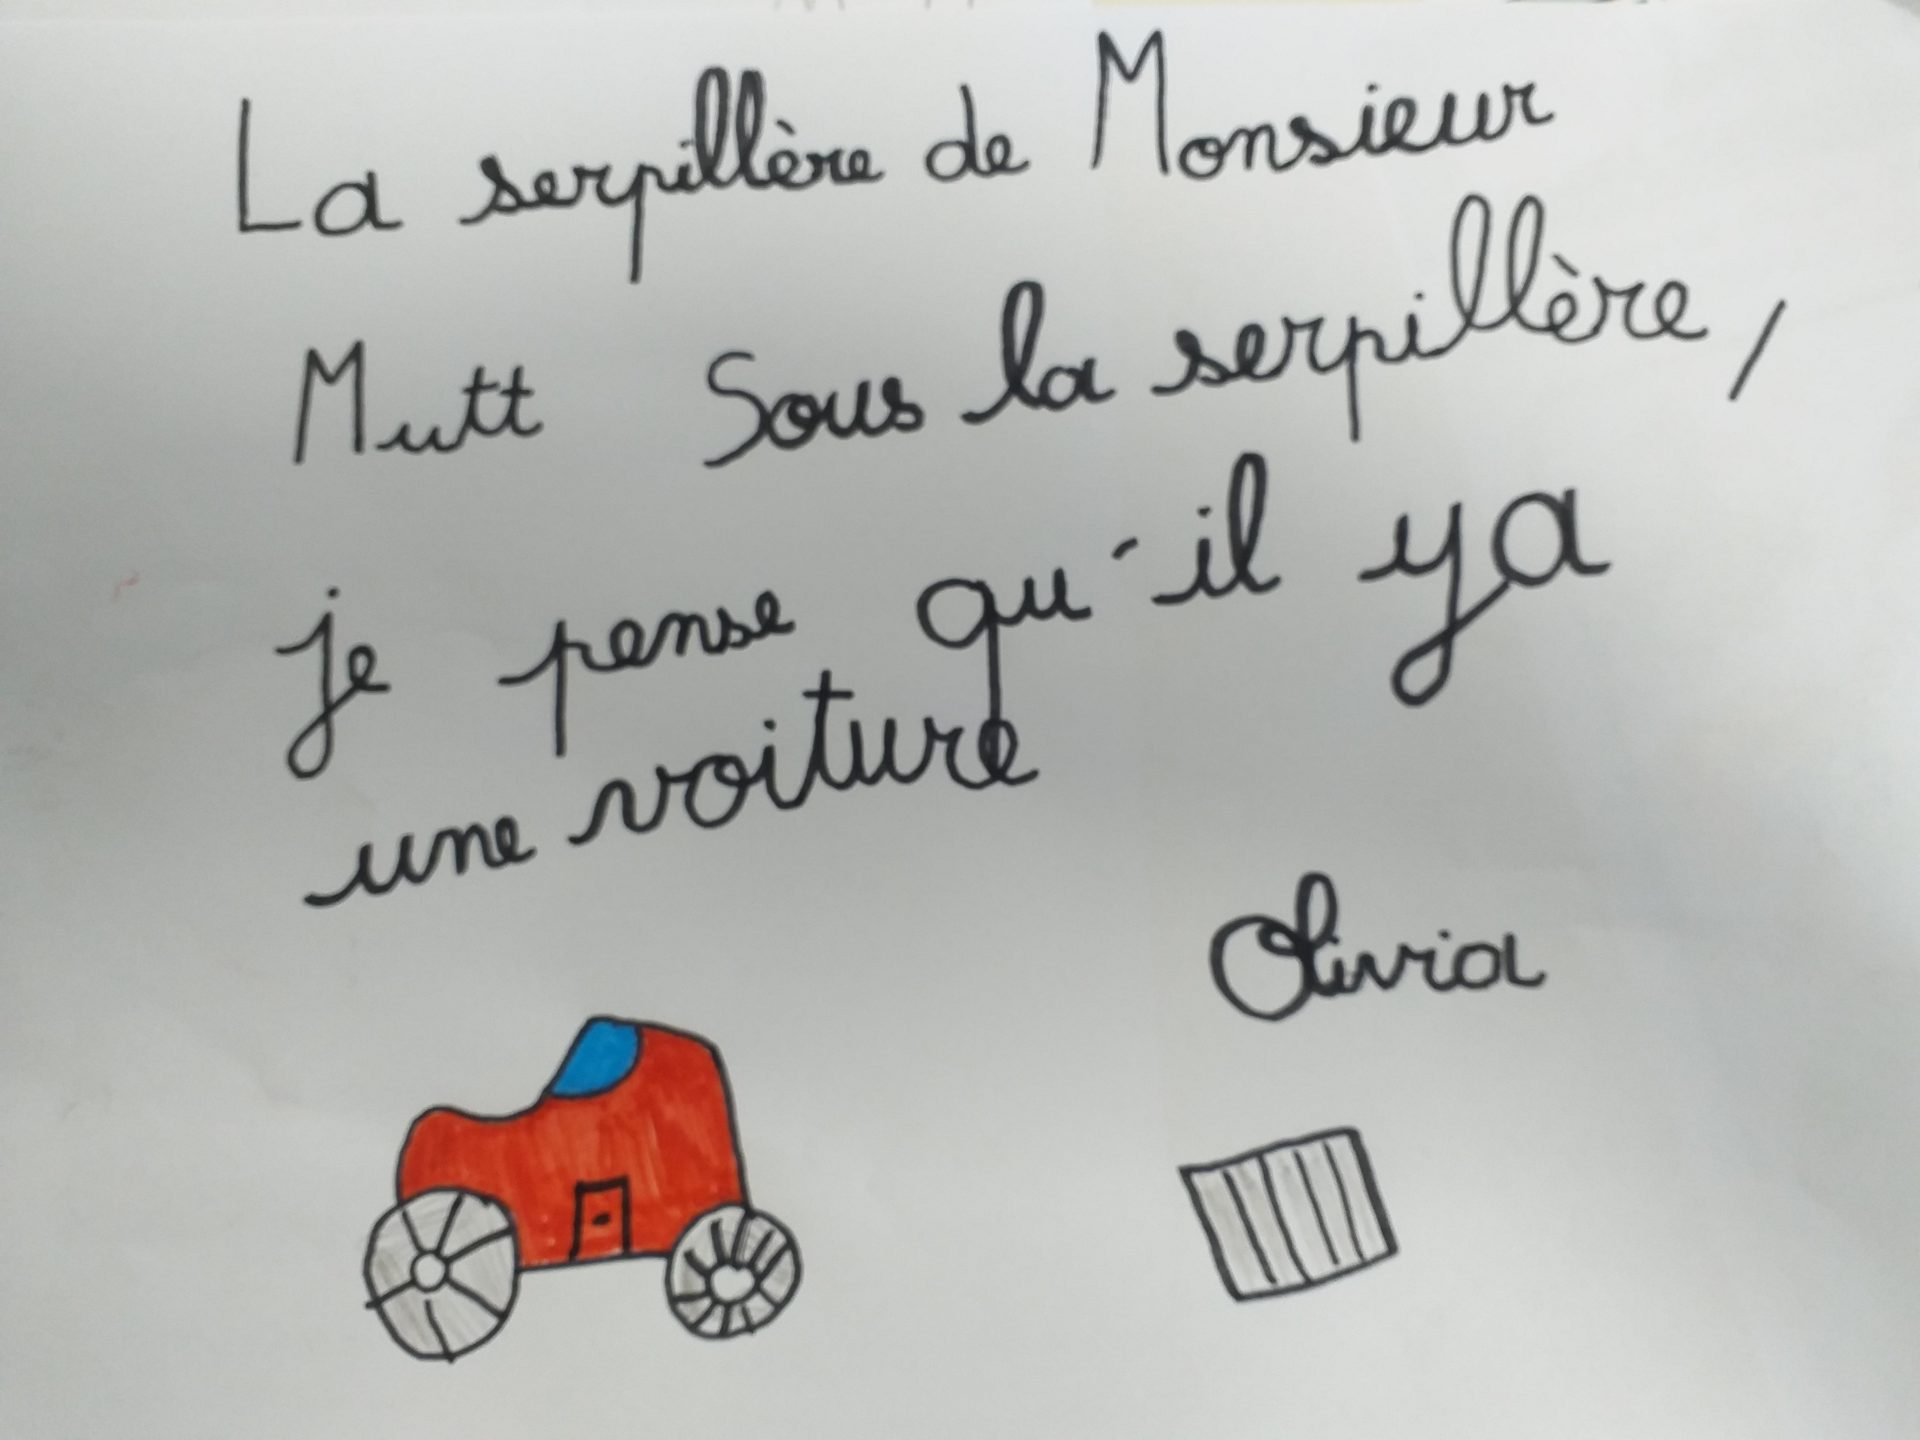 La serpillère de Monsieur
Mutt Sous la serpillère,
je pense qu'il ya
une voiture
Olivia